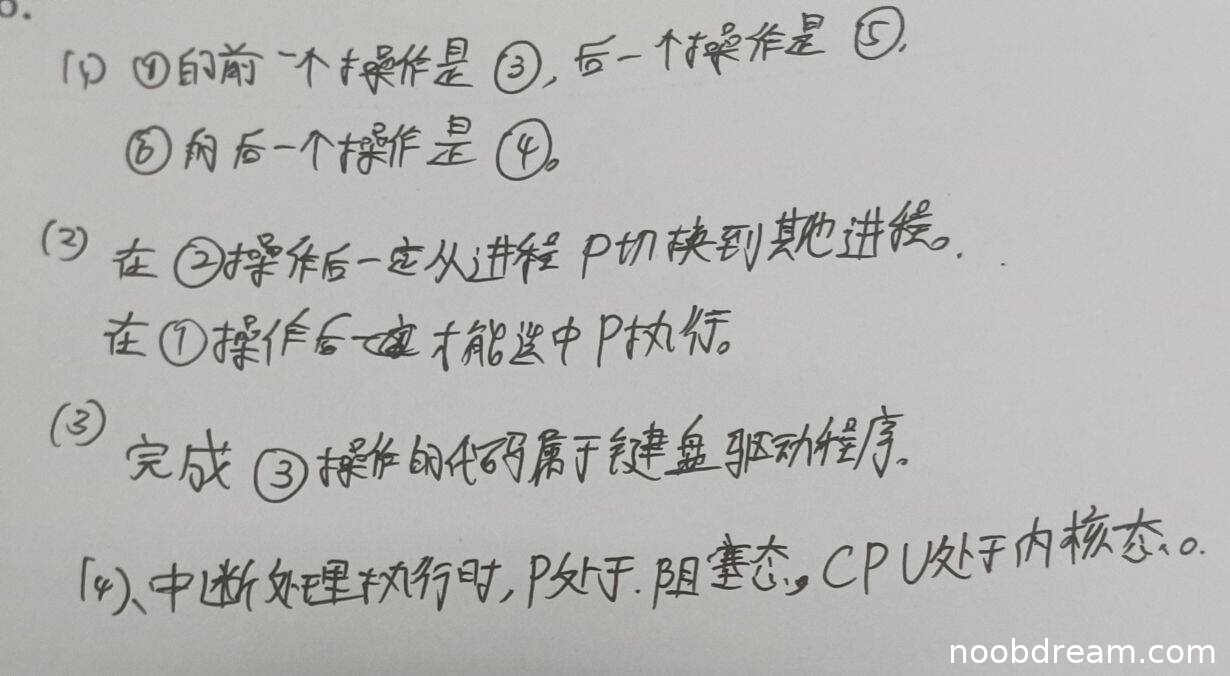 (1) ①的前一个操作是③,后一个操作是⑤,
⑥的后一个操作是④。
(2) 在②操作后一定从进程P切换到其他进程。
在①操作后一定才能选中P执行。
(3) 完成③操作的代码属于键盘驱动程序。
(4)、中断处理执行时,P处于阻塞态,CPU处于内核态。
noobdream.com